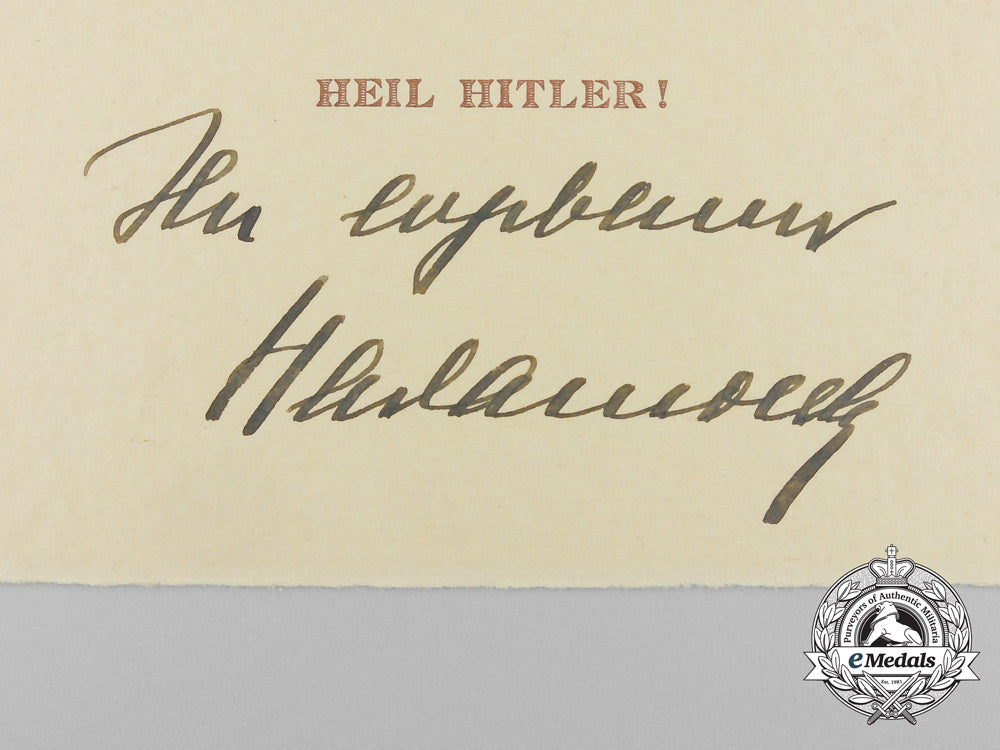 HEIL HITLER!
Ihr ergebener
Purveyors of Authentic Militaria
eMedals
Est. 1981